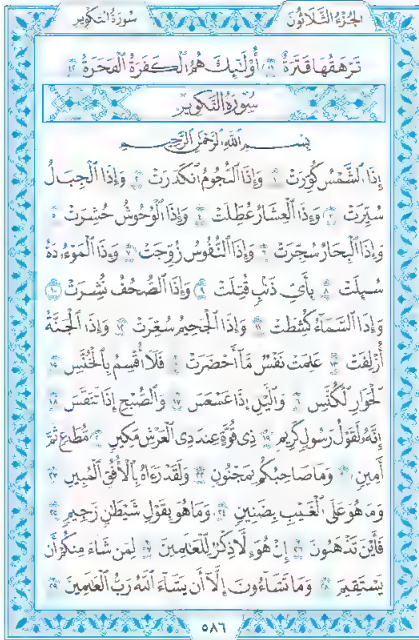 سورة التكوير الجزء الثلاثون
تَرْهَقُهَا قَتَرَةٌ ٤١ أُوْلَٰٓئِكَ هُمُ ٱلْكَفَرَةُ ٱلْفَجَرَةُ ٤٢
سورة التكوير
بِسْمِ ٱللَّهِ ٱلرَّحْمَٰنِ ٱلرَّحِيمِ
إِذَا ٱلشَّمْسُ كُوِّرَتْ ١ وَإِذَا ٱلنُّجُومُ ٱنكَدَرَتْ ٢ وَإِذَا ٱلْجِبَالُ
سُيِّرَتْ ٣ وَإِذَا ٱلْعِشَارُ عُطِّلَتْ ٤ وَإِذَا ٱلْوُحُوشُ حُشِرَتْ ٥
وَإِذَا ٱلْبِحَارُ سُجِّرَتْ ٦ وَإِذَا ٱلنُّفُوسُ زُوِّجَتْ ٧ وَإِذَا ٱلْمَوْءُۥدَةُ
سُئِلَتْ ٨ بِأَىِّ ذَنۢبٍ قُتِلَتْ ٩ وَإِذَا ٱلصُّحُفُ نُشِرَتْ ١٠
وَإِذَا ٱلسَّمَآءُ كُشِطَتْ ١١ وَإِذَا ٱلْجَحِيمُ سُعِّرَتْ ١٢ وَإِذَا ٱلْجَنَّةُ
أُزْلِفَتْ ١٣ عَلِمَتْ نَفْسٌ مَّآ أَحْضَرَتْ ١٤ فَلَآ أُقْسِمُ بِٱلْخُنَّسِ ١٥
ٱلْجَوَارِ ٱلْكُنَّسِ ١٦ وَٱلَّيْلِ إِذَا عَسْعَسَ ١٧ وَٱلصُّبْحِ إِذَا تَنَفَّسَ ١٨
إِنَّهُۥ لَقَوْلُ رَسُولٍ كَرِيمٍ ١٩ ذِى قُوَّةٍ عِندَ ذِى ٱلْعَرْشِ مَكِينٍ ٢٠ مُّطَاعٍ ثَمَّ
أَمِينٍ ٢١ وَمَا صَاحِبُكُم بِمَجْنُونٍ ٢٢ وَلَقَدْ رَءَاهُ بِٱلْأُفُقِ ٱلْمُبِينِ ٢٣
وَمَا هُوَ عَلَى ٱلْغَيْبِ بِضَنِينٍ ٢٤ وَمَا هُوَ بِقَوْلِ شَيْطَٰنٍ رَّجِيمٍ ٢٥
فَأَيْنَ تَذْهَبُونَ ٢٦ إِنْ هُوَ إِلَّا ذِكْرٌ لِّلْعَٰلَمِينَ ٢٧ لِمَن شَآءَ مِنكُمْ أَن
يَسْتَقِيمَ ٢٨ وَمَا تَشَآءُونَ إِلَّآ أَن يَشَآءَ ٱللَّهُ رَبُّ ٱلْعَٰلَمِينَ ٢٩
٥٨٦